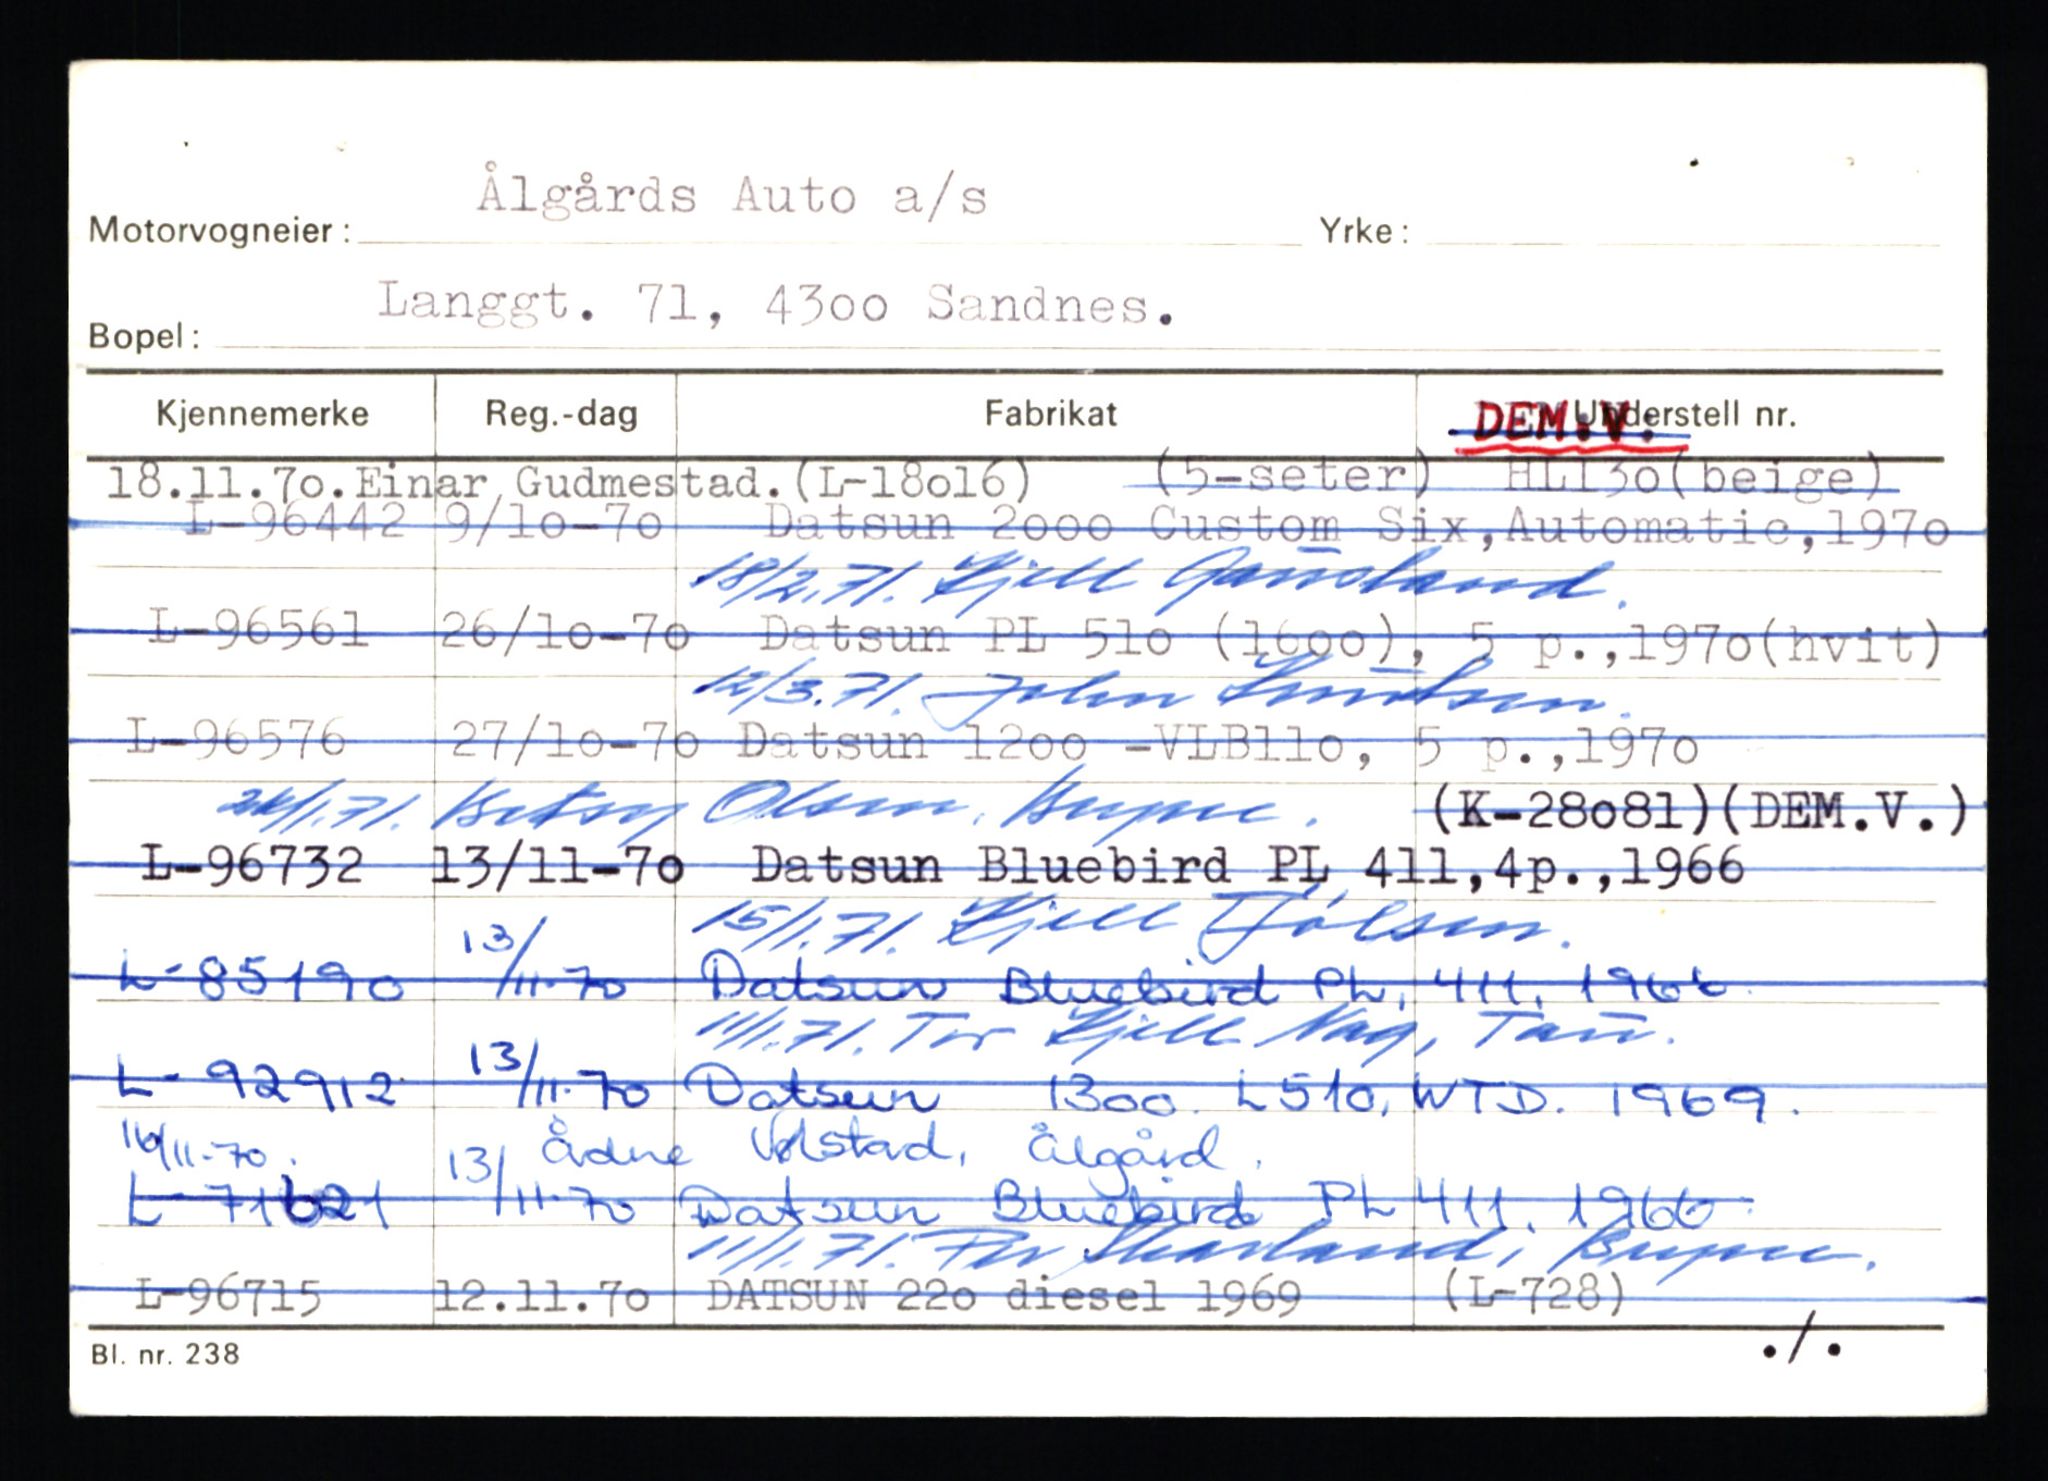 Ålgårds Auto a/s
Motorvogneier: Yrke:
Langgt. 71, 4300 Sandnes.
Bopel:
Kjennemerke Reg.-dag Fabrikat Understell nr.
DEM.V.
18.11.70. Einar Gudmestad. (L-18016) (5-seter) HL130(beige)
L-96442 9/10-70 Datsun 2000 Custom Six, Automatic, 1970
18/2.71. Kjell
L-96561 26/10-70 Datsun PL 510 (1600), 5 p., 1970(hvit)
12/3.71. John Knutsen.
L-96576 27/10-70 Datsun 1200 -VLB110, 5 p., 1970
/1.71. Betsy Olsen, Bryne.
(K-28081)(DEM.V.)
L-96732 13/11-70 Datsun Bluebird PL 411, 4p., 1966
15/1.71. Kjell Tjølsen.
L-85190 13/11-70 Datsun Bluebird PL, 411, 1966
11/1.71. Tor Kjell Nag, Tau.
L-92912 13/11-70 Datsun 1300. L510, WTD. 1969.
16/11-70. Ådne Volstad, Ålgård.
L-71621 13/11-70 Datsun Bluebird PL 411, 1966
11/1.71. Per Skarland, Bryne.
L-96715 12.11.70 DATSUN 220 diesel 1969 (L-728)
Bl. nr. 238 ./.